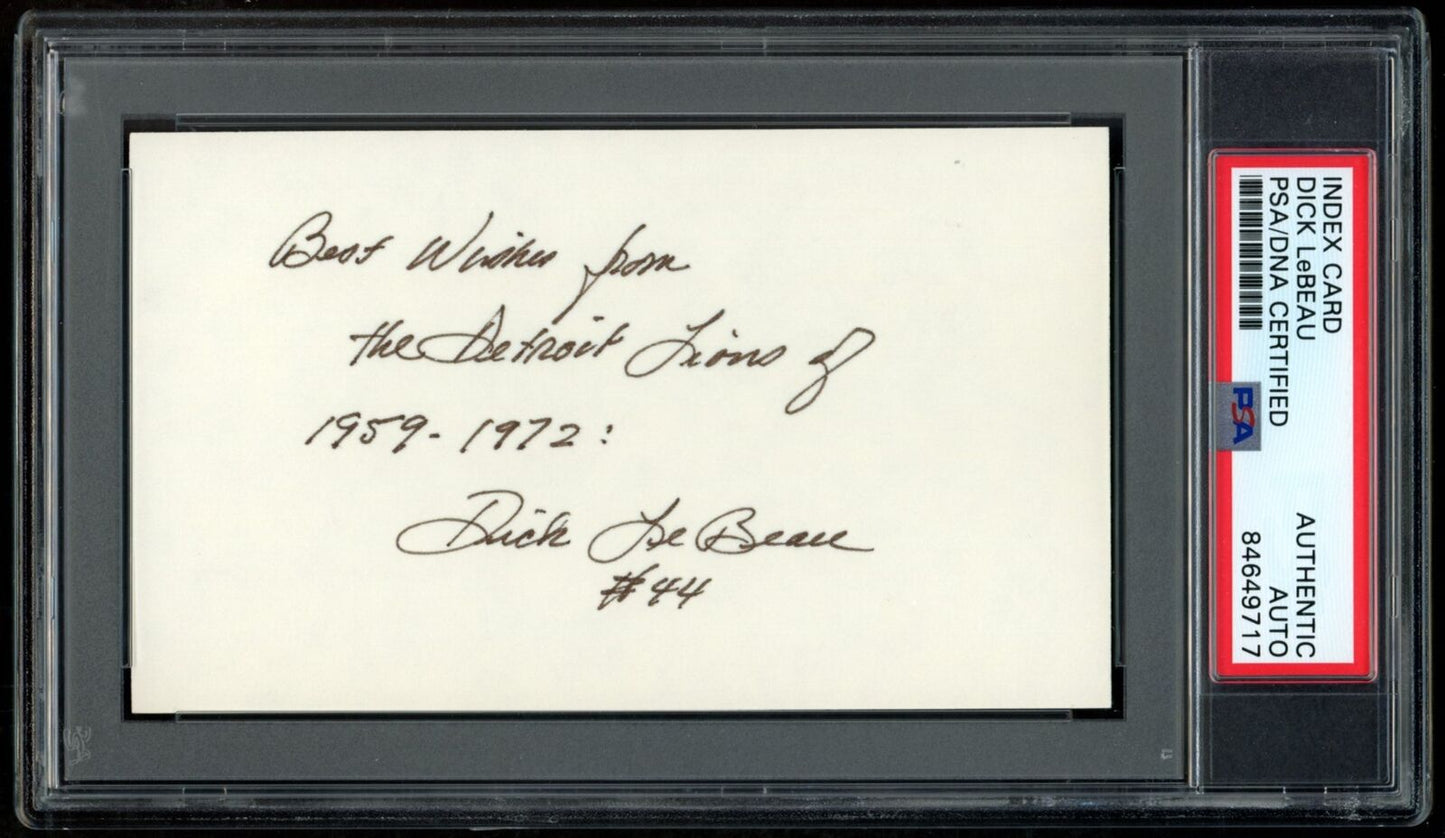 Best Wishes from
the Detroit Lions of
1959-1972:
Dick LeBeau
#44
INDEX CARD
DICK LeBEAU
PSA/DNA CERTIFIED
AUTHENTIC
AUTO
84649717
PSA